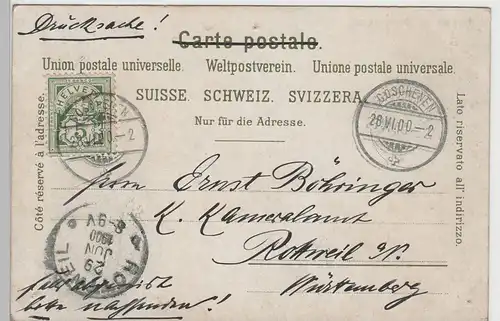 Drucksache!
Carte postale.
Union postale universelle. Weltpostverein. Unione postale universale.
SUISSE. SCHWEIZ. SVIZZERA.
Nur für die Adresse.
Côté réservé à l'adresse.
Lato riservato all' indirizzo.
HELVETIA
5
GÖSCHENEN
28.VI.00-2
Herrn Ernst Böhringer
K. Kameralamt
Rottweil N.
Württemberg
ROTTWEIL
29 JUN 1900 8-9V
falls abgereist
bitte nachsenden!